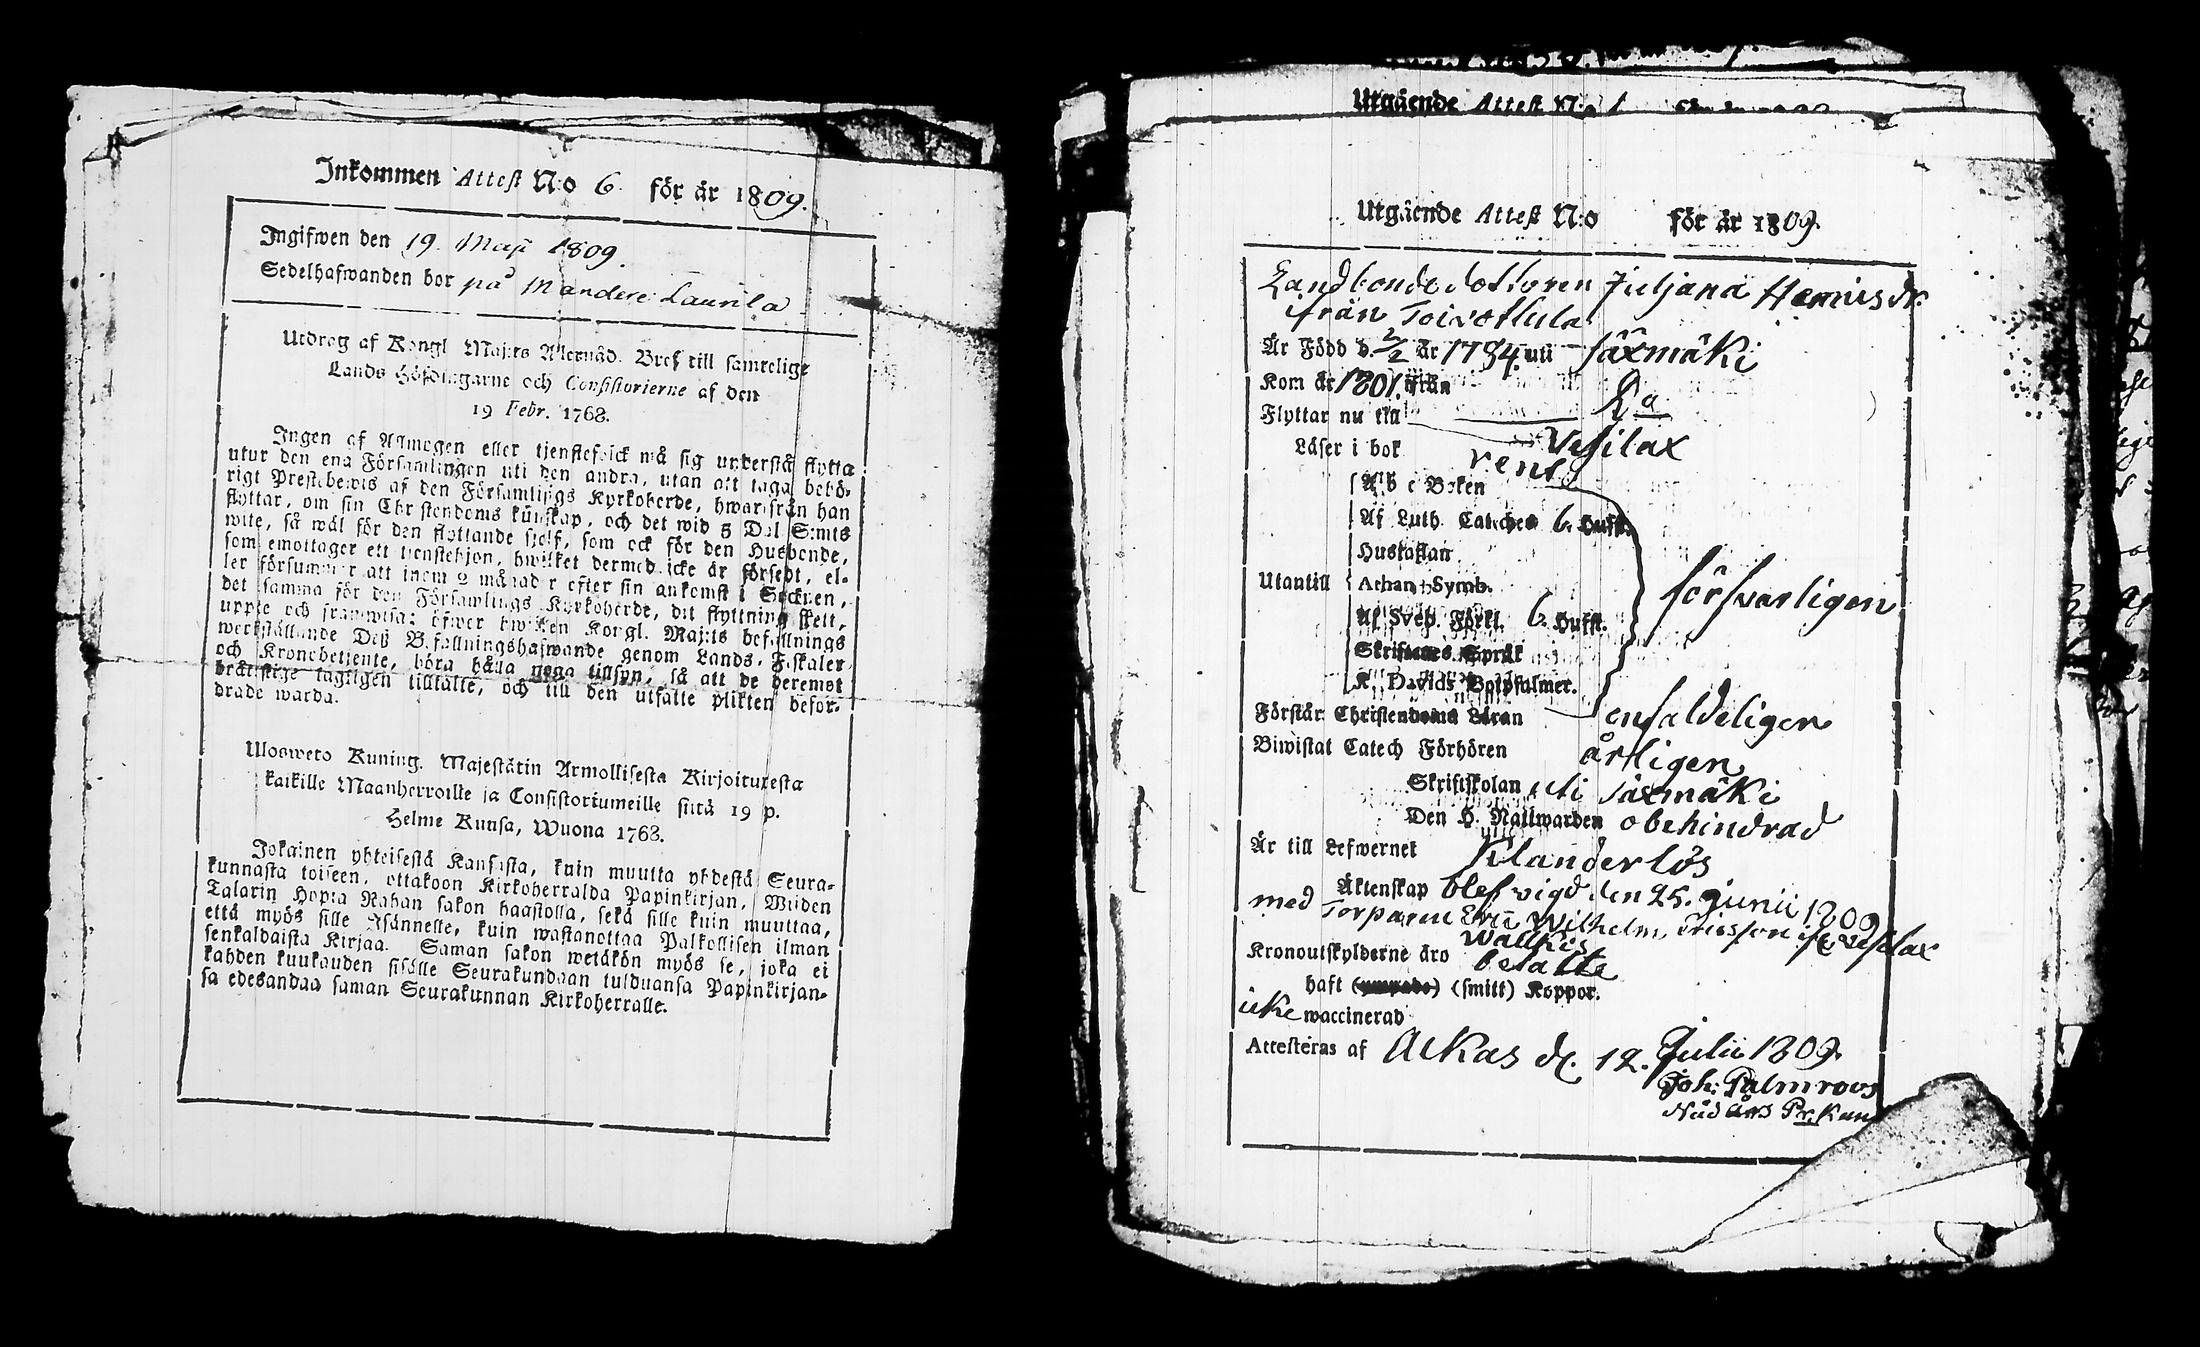 Inkommen Attest N:o 6. för år 1809.
Ingifwen den 19. Maji 1809.
Sedelhafwanden bor på Mandere Laurila
Utdrag af Kongl Maj:ts Allernåd. Bref till samtelige
Lands Höfdingarne och Consistorierne af den
19 Febr. 1768.
Ingen af Allmogen eller tjenstefolck må sig understå flytta
utur den ena Församlingen uti den andra, utan att taga behö-
rigt Prestebewis af den Församlings Kyrkoherde, hwarifrån han
flyttar, om sin Christendoms kunskap, och det wid 5 Dal S:mts
wite, så wäl för den flyttande sjelf, som ock för den Husbonde,
som emottager ett tjenstehjon, hwilket dermed icke är försedt, el-
ler försummar att inom 2 månader efter sin ankomst i Socknen,
det samma för den Församlings Kyrkoherde, dit flyttning skett,
uppte och framwisa; öfwer hwilken Kongl. Maj:ts befallnings
werkställande Deß Befallningshafwande genom Lands-Fiskaler
och Kronobetjente, böra hålla noga tillsyn, så att de deremot
bråtslige lagligen tilltalte, och till den utsatte plikten befor-
drade warda.
Ulosweto Kuning. Majestätin Armollisesta Kirjoituxesta
kaikille Maanherroille ja Consistoriumeille siitä 19 p.
Helme Kunsa, Wuona 1768.
Jokainen yhteisestä Kansasta, kuin muutta yhdestä Seura-
kunnasta toiseen, ottakoon Kirkoherralda Papinkirjan, Wiiden
Talarin Hopia Rahan sakon haastolla, sekä sille kuin muuttaa,
että myös sille Isännelle, kuin wastanottaa Palkollisen ilman
senkaldaista Kirjaa. Saman sakon wetäkön myös se, joka ei
kahden kuukauden sisälle Seurakundaan tulduansa Papinkirjan-
sa edesandaa saman Seurakunnan Kirkoherralle.
Utgående Attest N:o 1
Utgående Attest N:o för år 1809.
Landbondedottoren Juljana Henricsdr.
ifrån Toivottula
Är Född d. 2/2 år 1784 uti Säxmäki
Kom år 1801. från
Flyttar nu till
Vesilax
Läser i bok rent
A B C Boken
Af Luth. Cateches 6. Hufst.
Hustaflan
Utantill Athan. Symb.
Af Sveb. Förkl. 6. Hufst.
försvarligen
Skriftenes Språk
K. Davids Botpsalmer.
Förstår Christendoms Läran enfaldeligen
Biwistat Catech Förhören årligen
Skriftskolan uti Säxmäki
Den H. Nattwarden obehindrad
Är till Lefwernet Klanderlös
Äktenskap blef vigd den 25. Junii 1809
med Torparen Eric Wilhelm Ericsson ifr. Vesilax
Kronoutskylderne äro betalte
haft (smitt) Koppor.
icke waccinerad
Attesteras af Ackas d. 12. Julii 1809.
Joh: Palmroos